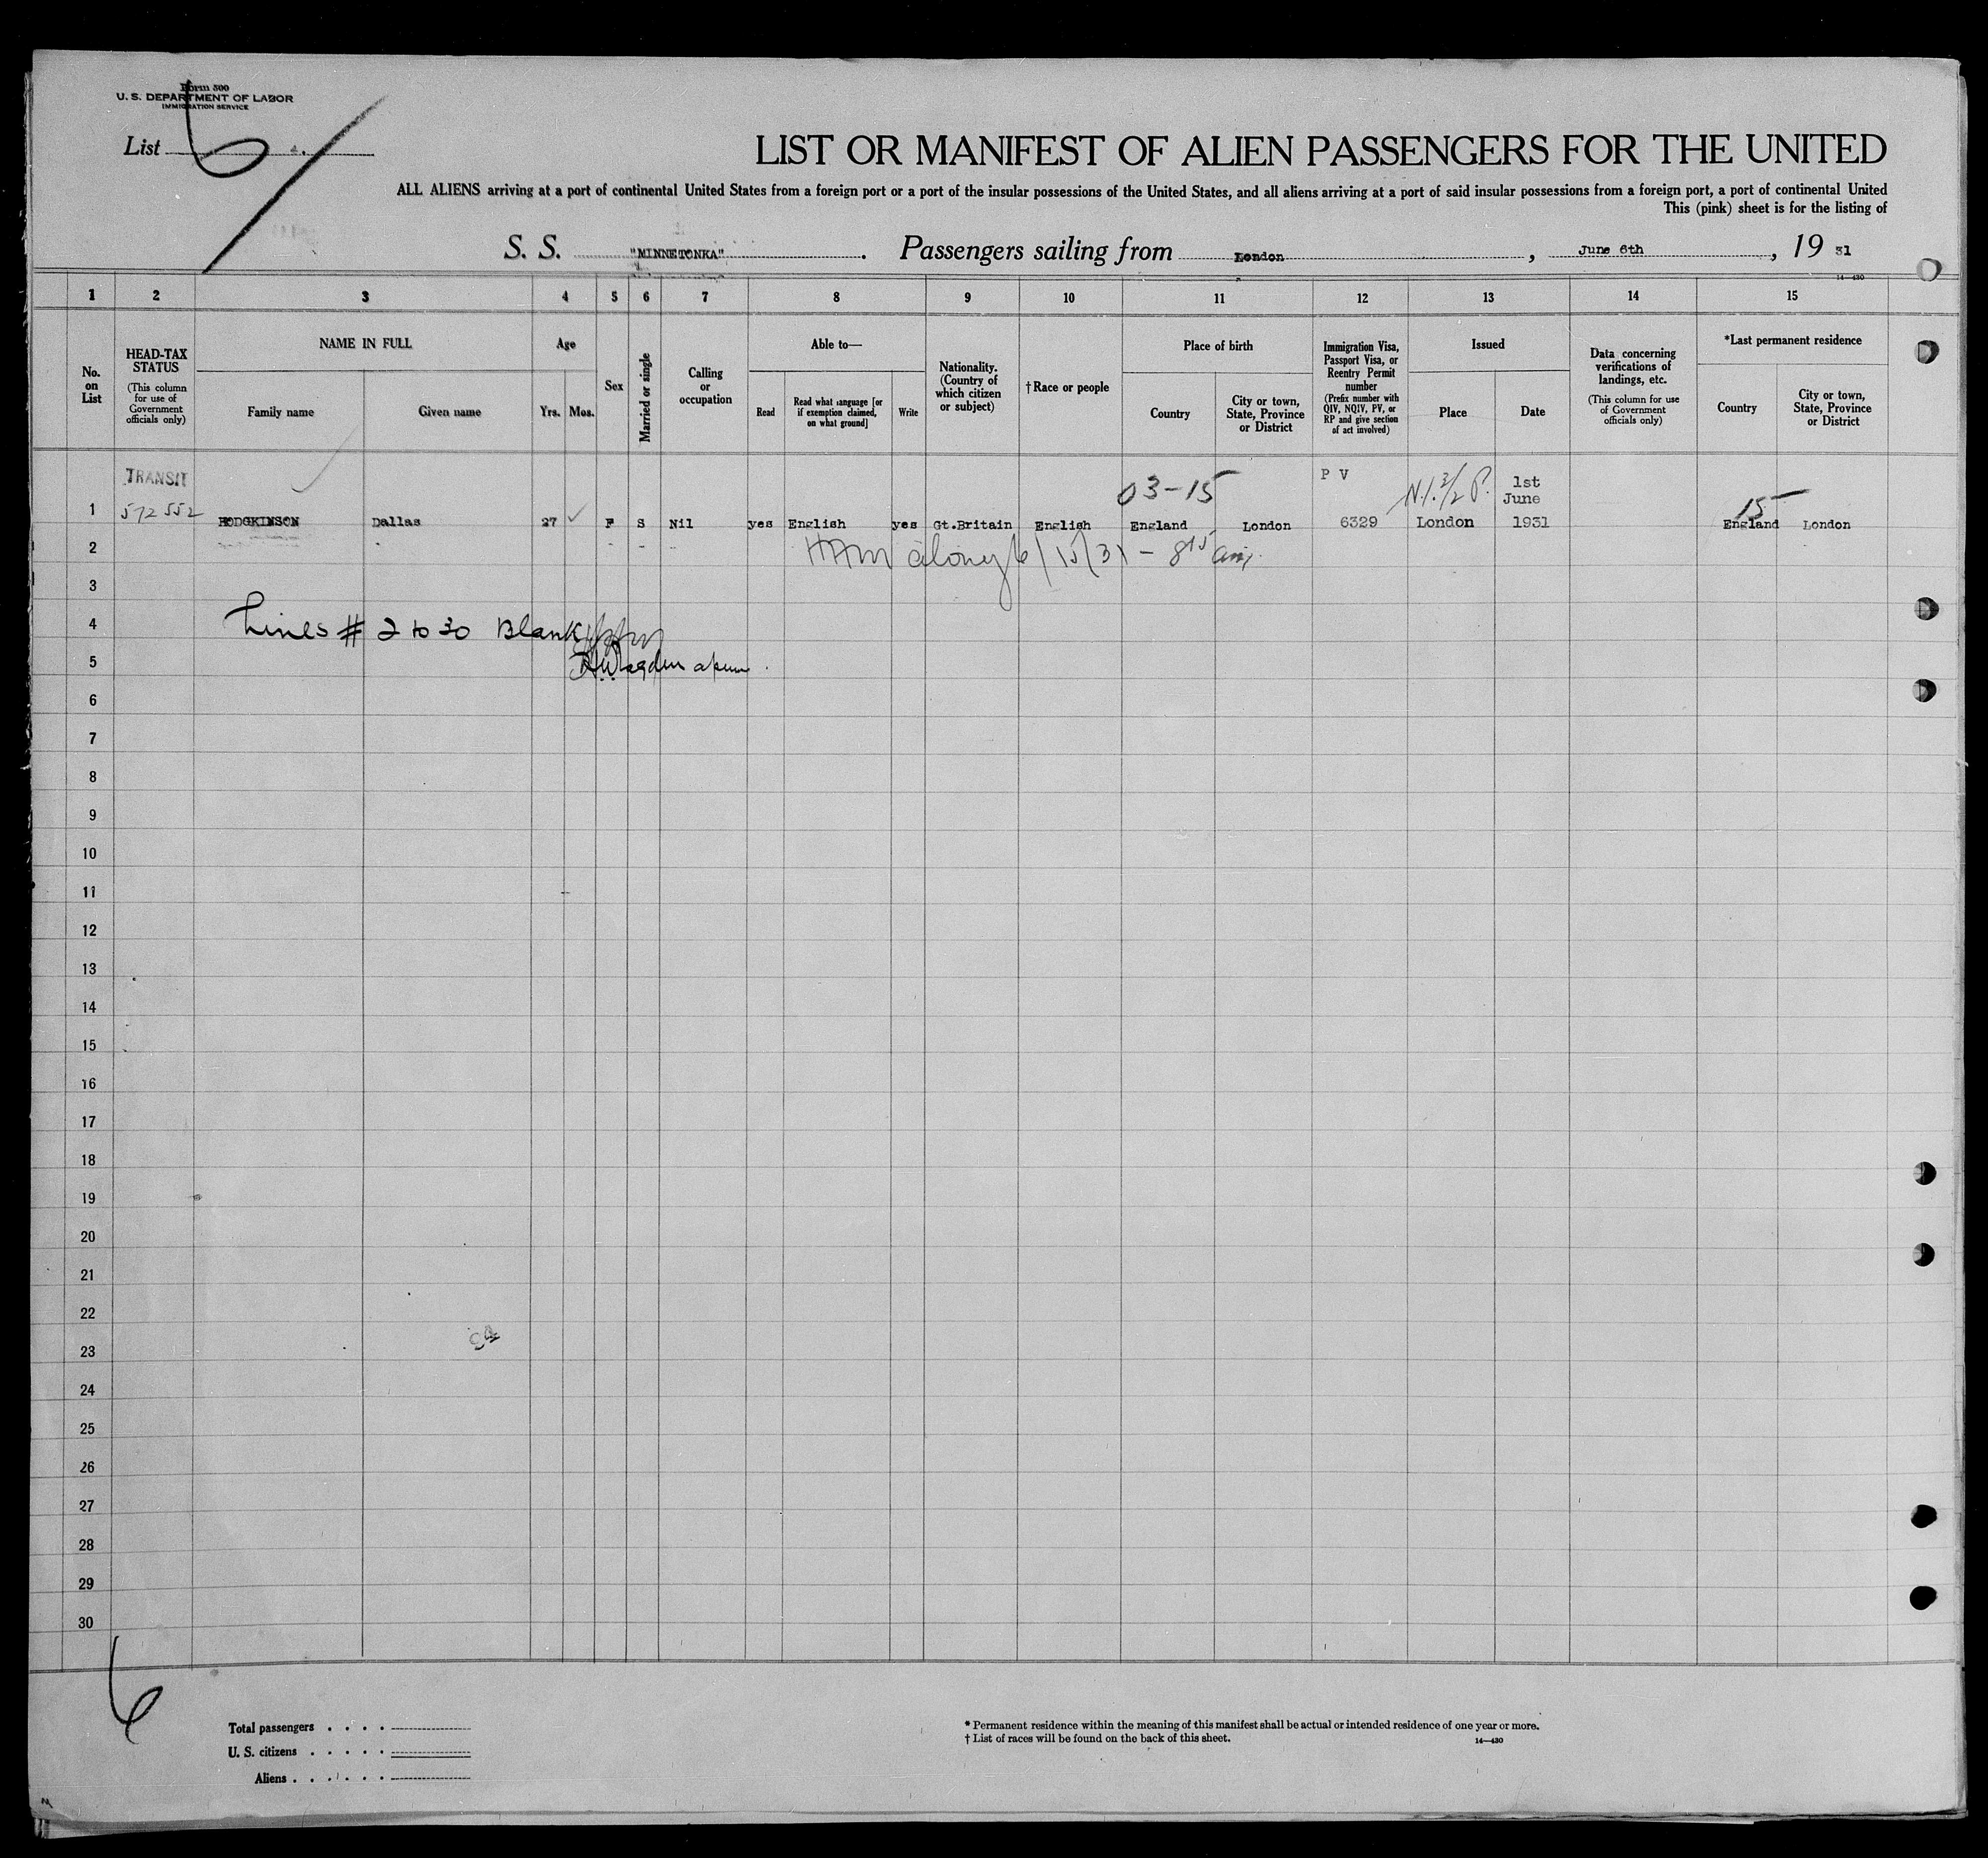 Form 500
U. S. DEPARTMENT OF LABOR
IMMIGRATION SERVICE
List 6
LIST OR MANIFEST OF ALIEN PASSENGERS FOR THE UNITED
ALL ALIENS arriving at a port of continental United States from a foreign port or a port of the insular possessions of the United States, and all aliens arriving at a port of said insular possessions from a foreign port, a port of continental United
This (pink) sheet is for the listing of
S. S. "MINNETONKA". Passengers sailing from London, June 6th, 19 31
14—430
1 2 3 4 5 6 7 8 9 10 11 12 13 14 15
No. on List
HEAD-TAX STATUS
(This column for use of Government officials only)
NAME IN FULL
Family name
Given name
Age
Yrs. Mos.
Sex
Married or single
Calling or occupation
Able to—
Read
Read what language [or if exemption claimed, on what ground]
Write
Nationality. (Country of which citizen or subject)
†Race or people
Place of birth
Country
City or town, State, Province or District
Immigration Visa, Passport Visa, or Reentry Permit number
(Prefix number with QIV, NQIV, PV, or RP and give section of act involved)
Issued
Place
Date
Data concerning verifications of landings, etc.
(This column for use of Government officials only)
*Last permanent residence
Country
City or town, State, Province or District
TRANSIT
03-15
P V
1st
June
15
1 572552 HODGKINSON Dallas 27 F S Nil yes English yes Gt.Britain English England London 6329 London 1931 England London
2 6/15/31 - 8 15 am
3
4 Lines # 2 to 30 Blank
5
6
7
8
9
10
11
12
13
14
15
16
17
18
19
20
21
22
23
24
25
26
27
28
29
30
6
Total passengers . . . .
U. S. citizens . . . . .
Aliens . . . . . .
* Permanent residence within the meaning of this manifest shall be actual or intended residence of one year or more.
† List of races will be found on the back of this sheet.
14—430